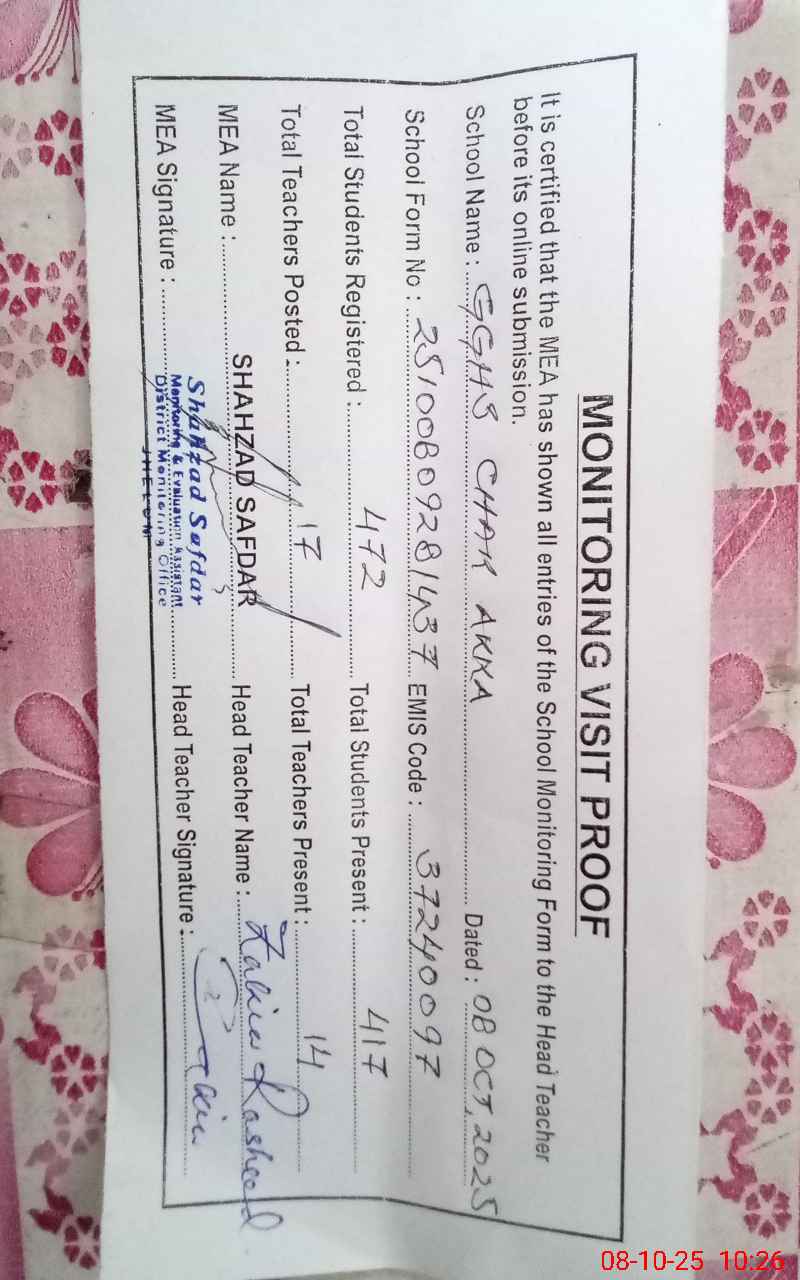 MONITORING VISIT PROOF
It is certified that the MEA has shown all entries of the School Monitoring Form to the Head Teacher
before its online submission.
School Name : GGHS CHAK AKKA Dated : 08 OCT, 2025
School Form No : 25100809281437 EMIS Code : 37240097
Total Students Registered : 472 Total Students Present : 417
Total Teachers Posted : 17 Total Teachers Present : 14
MEA Name : SHAHZAD SAFDAR Head Teacher Name : Rasheed
MEA Signature : Head Teacher Signature :
Shahzad Safdar
Monitoring & Evaluation Assistant
District Monitoring Office
JHELUM
08-10-25 10:26